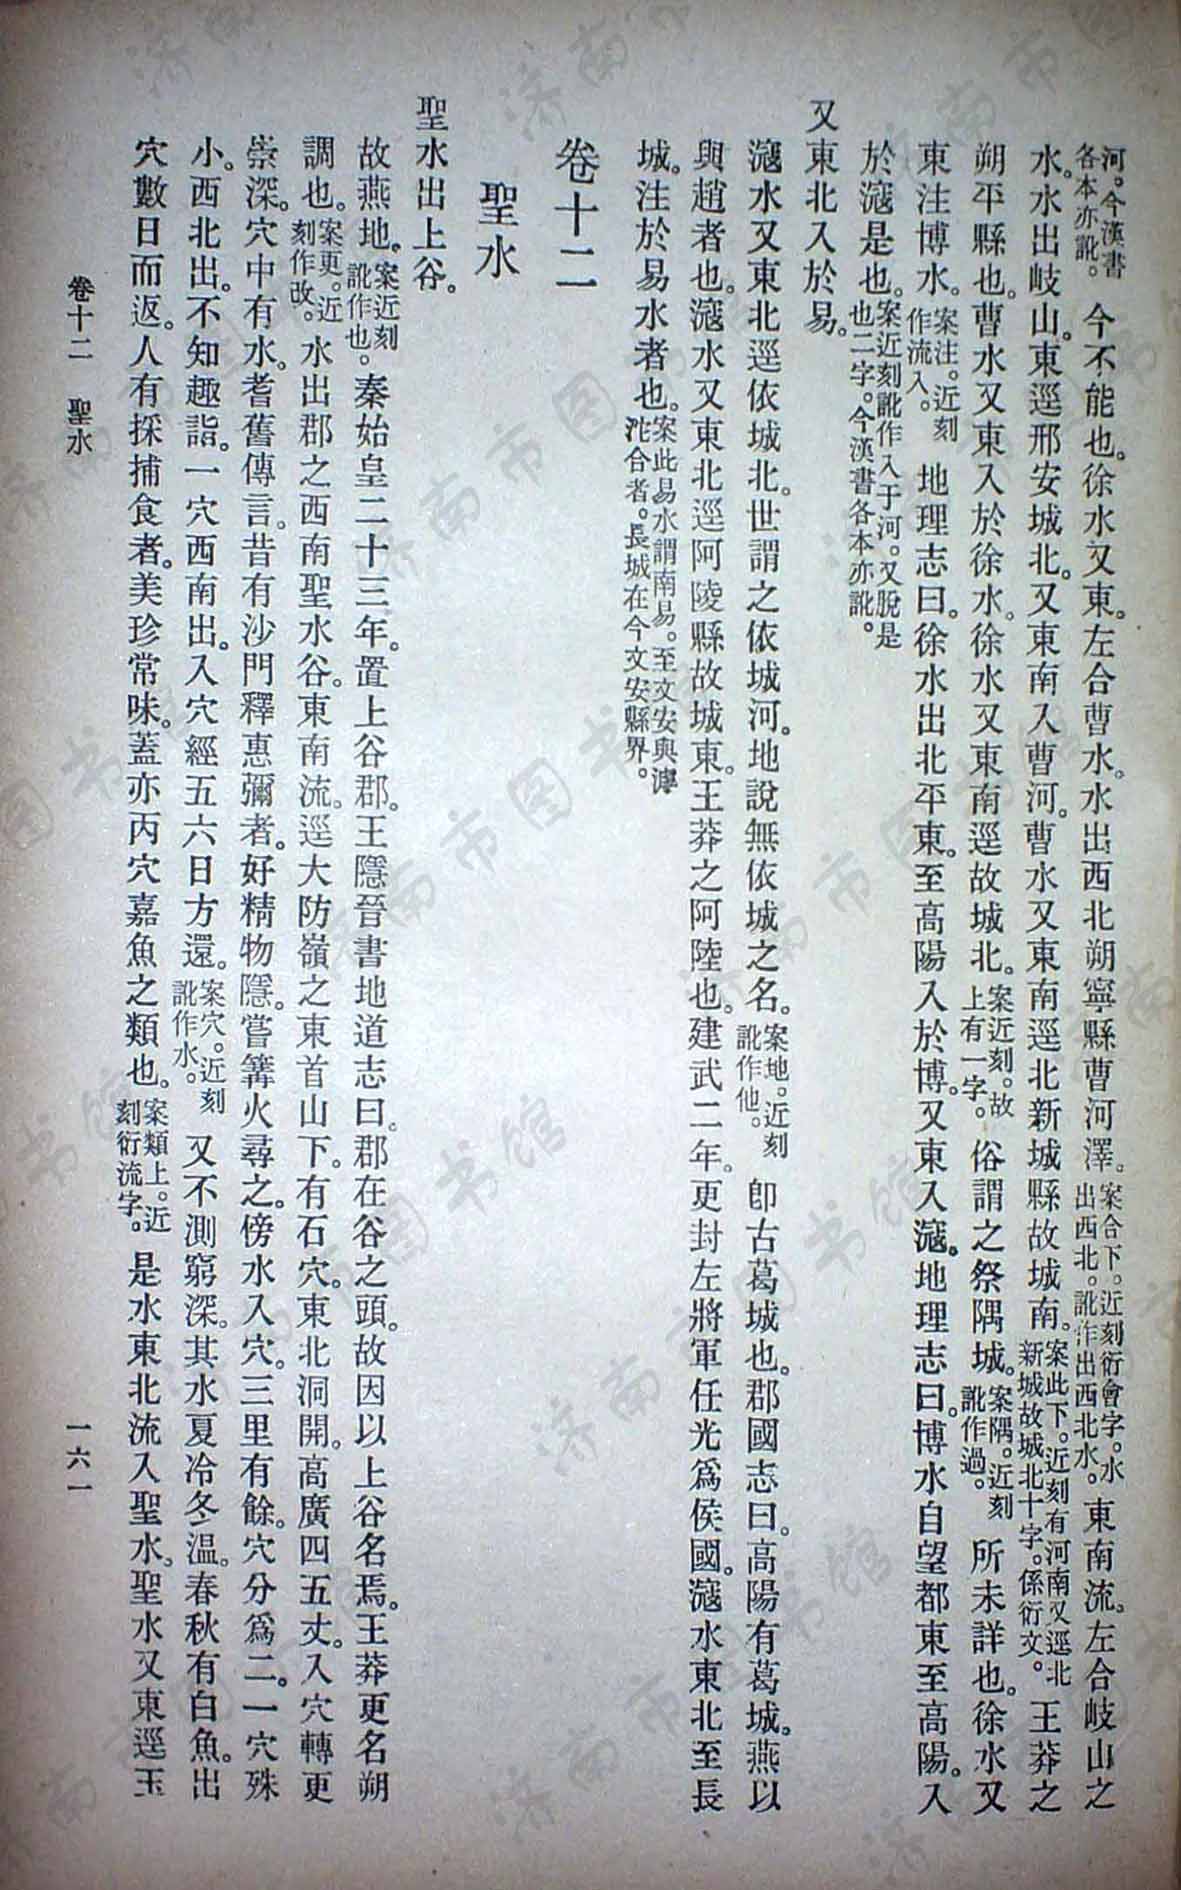 河。今漢書各本亦訛。今不能也。徐水又東。左合曹水。水出西北朔寧縣曹河澤。案合下。近刻衍會字。水出西北。訛作出西北水。東南流。左合岐山之
水。水出岐山。東逕邢安城北。又東南入曹河。曹水又東南逕北新城縣故城南。案此下。近刻有河南又逕北新城故城北十字。係衍文。王莽之
朔平縣也。曹水又東入於徐水。徐水又東南逕故城北。案近刻。故上有一字。俗謂之祭隅城。案隅。近刻訛作過。所未詳也。徐水又
東注博水。案注。近刻作流入。地理志曰。徐水出北平東。至高陽入於博。又東入滱。地理志曰。博水自望都東至高陽。入
於滱是也。案近刻訛作入于河。又脫是也二字。今漢書各本亦訛。
又東北入於易。
滱水又東北逕依城北。世謂之依城河。地說無依城之名。案地。近刻訛作他。卽古葛城也。郡國志曰。高陽有葛城。燕以
與趙者也。滱水又東北逕阿陵縣故城東。王莽之阿陸也。建武二年。更封左將軍任光爲侯國。滱水東北至長
城。注於易水者也。案此易水謂南易。至文安與滹沱合者。長城在今文安縣界。
卷十二
聖水
聖水出上谷。
故燕地。案近刻訛作也。秦始皇二十三年。置上谷郡。王隱晉書地道志曰。郡在谷之頭。故因以上谷名焉。王莽更名朔
調也。案更。近刻作改。水出郡之西南聖水谷。東南流。逕大防嶺之東首山下。有石穴。東北洞開。高廣四五丈。入穴轉更
崇深。穴中有水。耆舊傳言。昔有沙門釋惠彌者。好精物隱。嘗篝火尋之。傍水入穴。三里有餘。穴分爲二。一穴殊
小。西北出。不知趣詣。一穴西南出。入穴經五六日方還。案穴。近刻訛作水。又不測窮深。其水夏冷冬溫。春秋有白魚。出
穴數日而返。人有採捕食者。美珍常味。蓋亦丙穴嘉魚之類也。案類上。近刻衍流字。是水東北流入聖水。聖水又東逕玉
卷十二 聖水
一六一
济南市图书馆